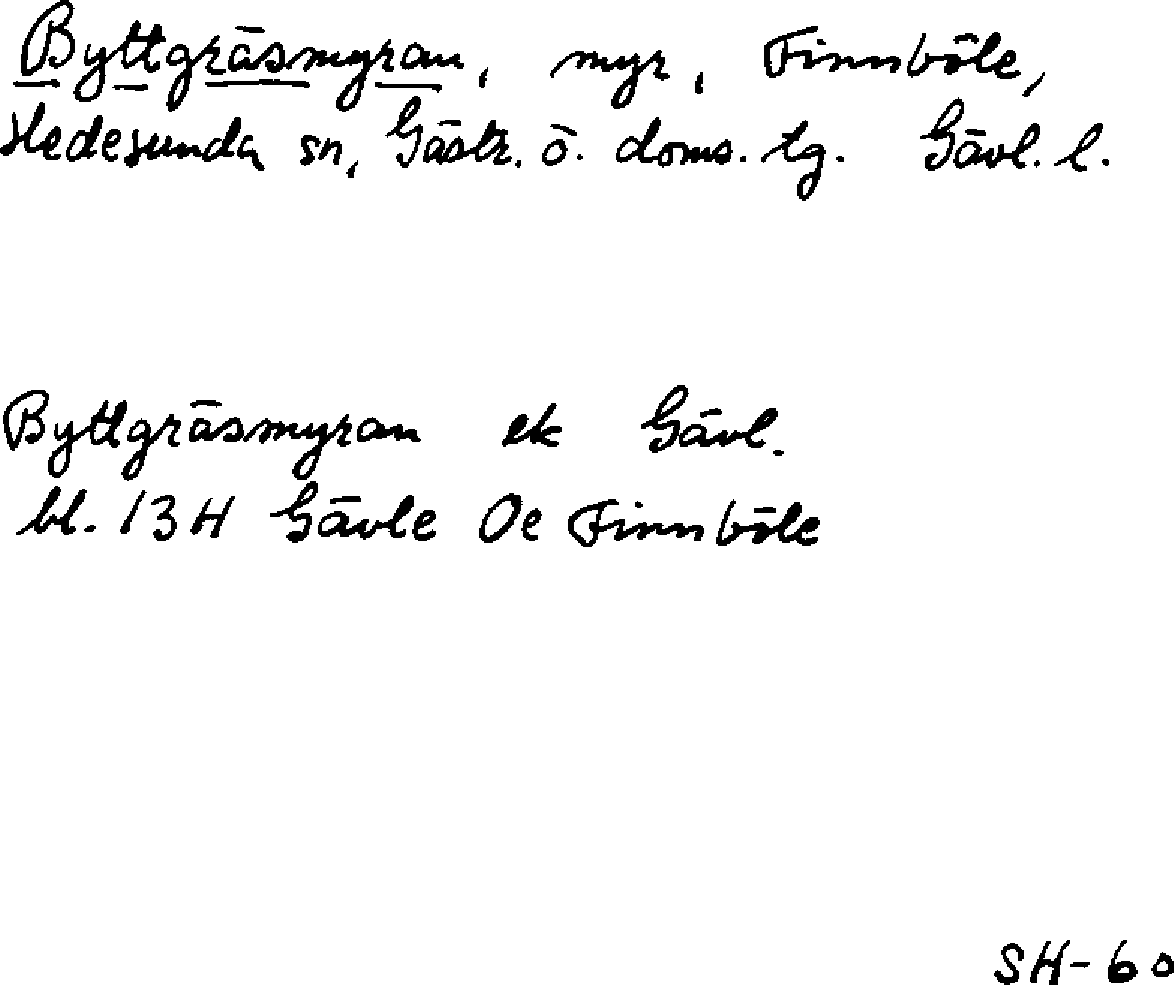 Byttgräsmyran, myr, Finnböle,
Hedesunda sn, Gästr. ö. doms. tg. Gävl. l.
Byttgräsmyran ek Gävl.
bl. 13H Gävle Oe Finnböle
SH-60